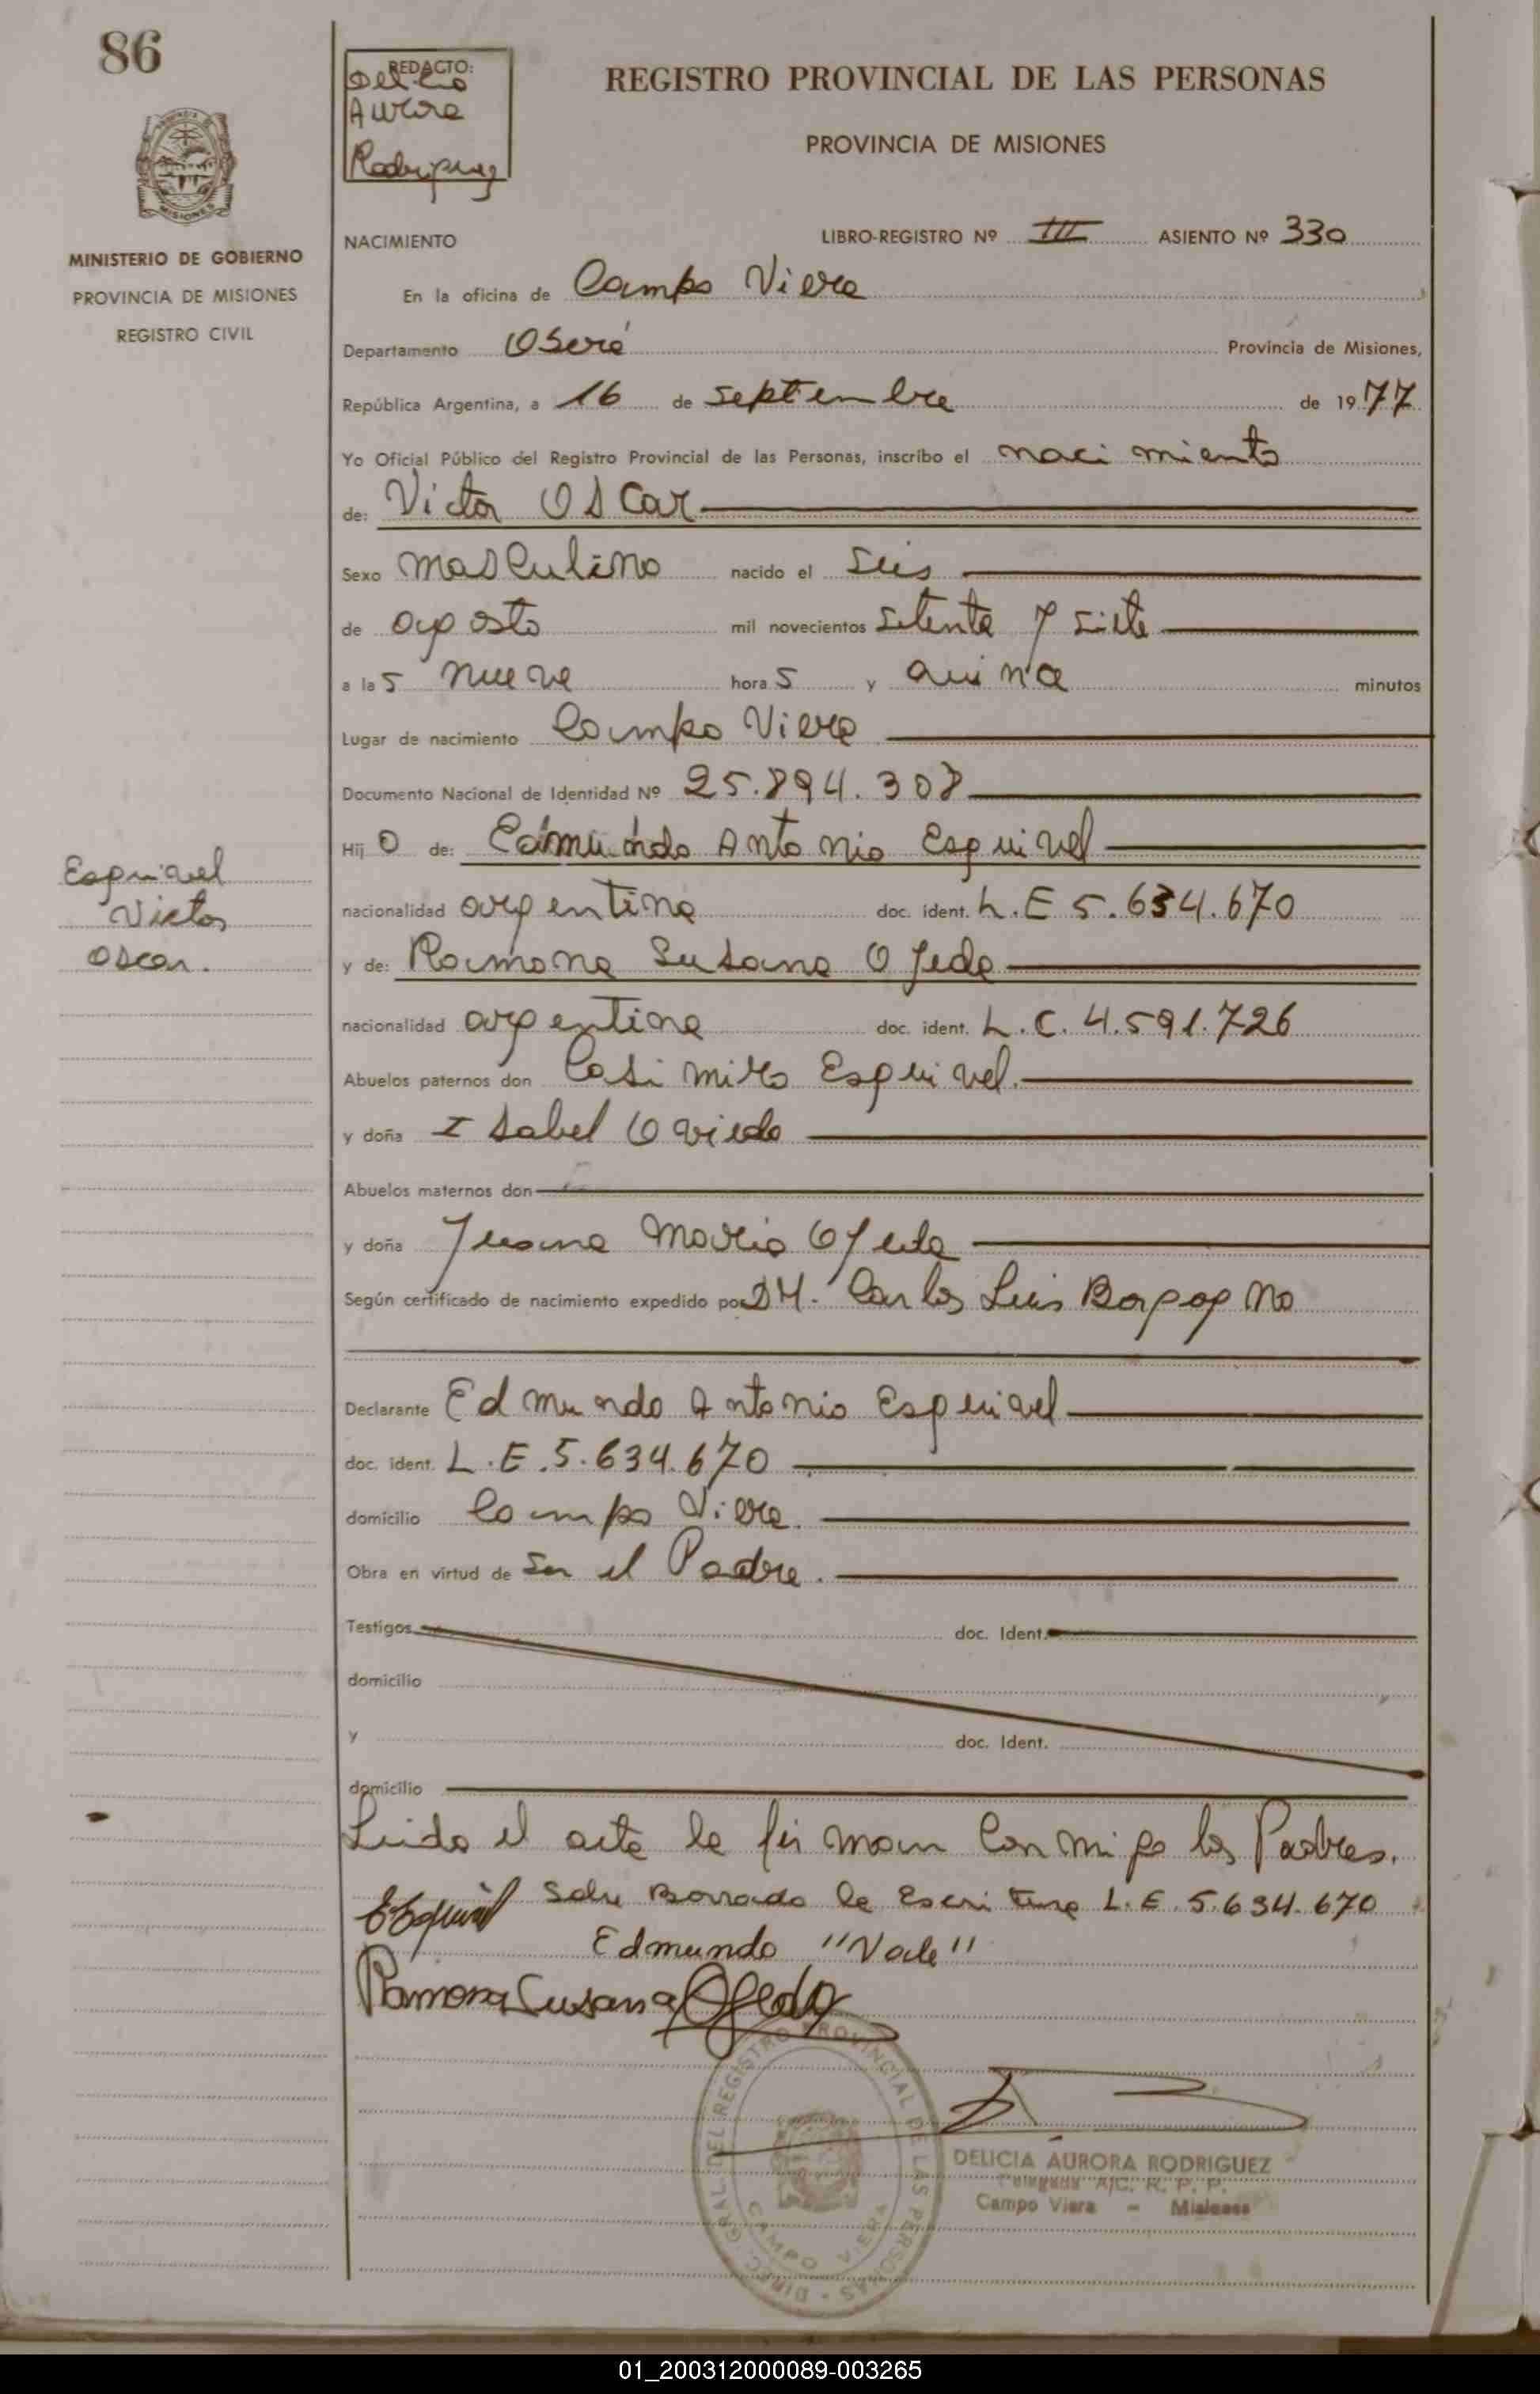 86
REDACTO:
Delcio
Aurora
Rodriguez
REGISTRO PROVINCIAL DE LAS PERSONAS
PROVINCIA DE MISIONES
MINISTERIO DE GOBIERNO
PROVINCIA DE MISIONES
REGISTRO CIVIL
NACIMIENTO LIBRO-REGISTRO Nº III ASIENTO Nº 330
En la oficina de Campo Viera
Departamento Oberá Provincia de Misiones,
República Argentina, a 16 de septiembre de 1977
Yo Oficial Público del Registro Provincial de las Personas, inscribo el nacimiento
de: Victor Oscar
Sexo masculino nacido el seis
de agosto mil novecientos setenta y siete
a las nueve horas y quince minutos
Lugar de nacimiento Campo Viera
Documento Nacional de Identidad Nº 25.894.308
Hijo de: Edmundo Antonio Esquivel
nacionalidad argentina doc. ident. L.E 5.634.670
y de: Ramona Susana Ojeda
nacionalidad argentina doc. ident. L.C. 4.591.726
Abuelos paternos don Casimiro Esquivel.
y doña Isabel Oviedo
Abuelos maternos don
y doña Juana Maria Ojeda
Según certificado de nacimiento expedido por Dr. Carlos Luis Bergagno
Esquivel
Victor
Oscar.
Declarante Edmundo Antonio Esquivel
doc. ident. L.E.5.634.670
domicilio Campo Viera.
Obra en virtud de ser el Padre.
Testigos doc. Ident.
domicilio
y doc. Ident.
domicilio
Leida el acta la firman conmigo los Padres.
EEsquivel Sobre Borrado la Escritura L.E. 5.634.670
Edmundo "Vale"
Ramona Susana Ojeda
DIREC. GRAL. DEL REGISTRO PROVINCIAL DE LAS PERSONAS
CAMPO VIERA
DELICIA AURORA RODRIGUEZ
A/C. R. P. P.
Campo Viera - Misiones
01_200312000089-003265